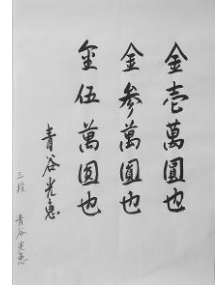 金壱萬圓也
金参萬圓也
金伍萬圓也
青谷光恵
三段 青谷光恵